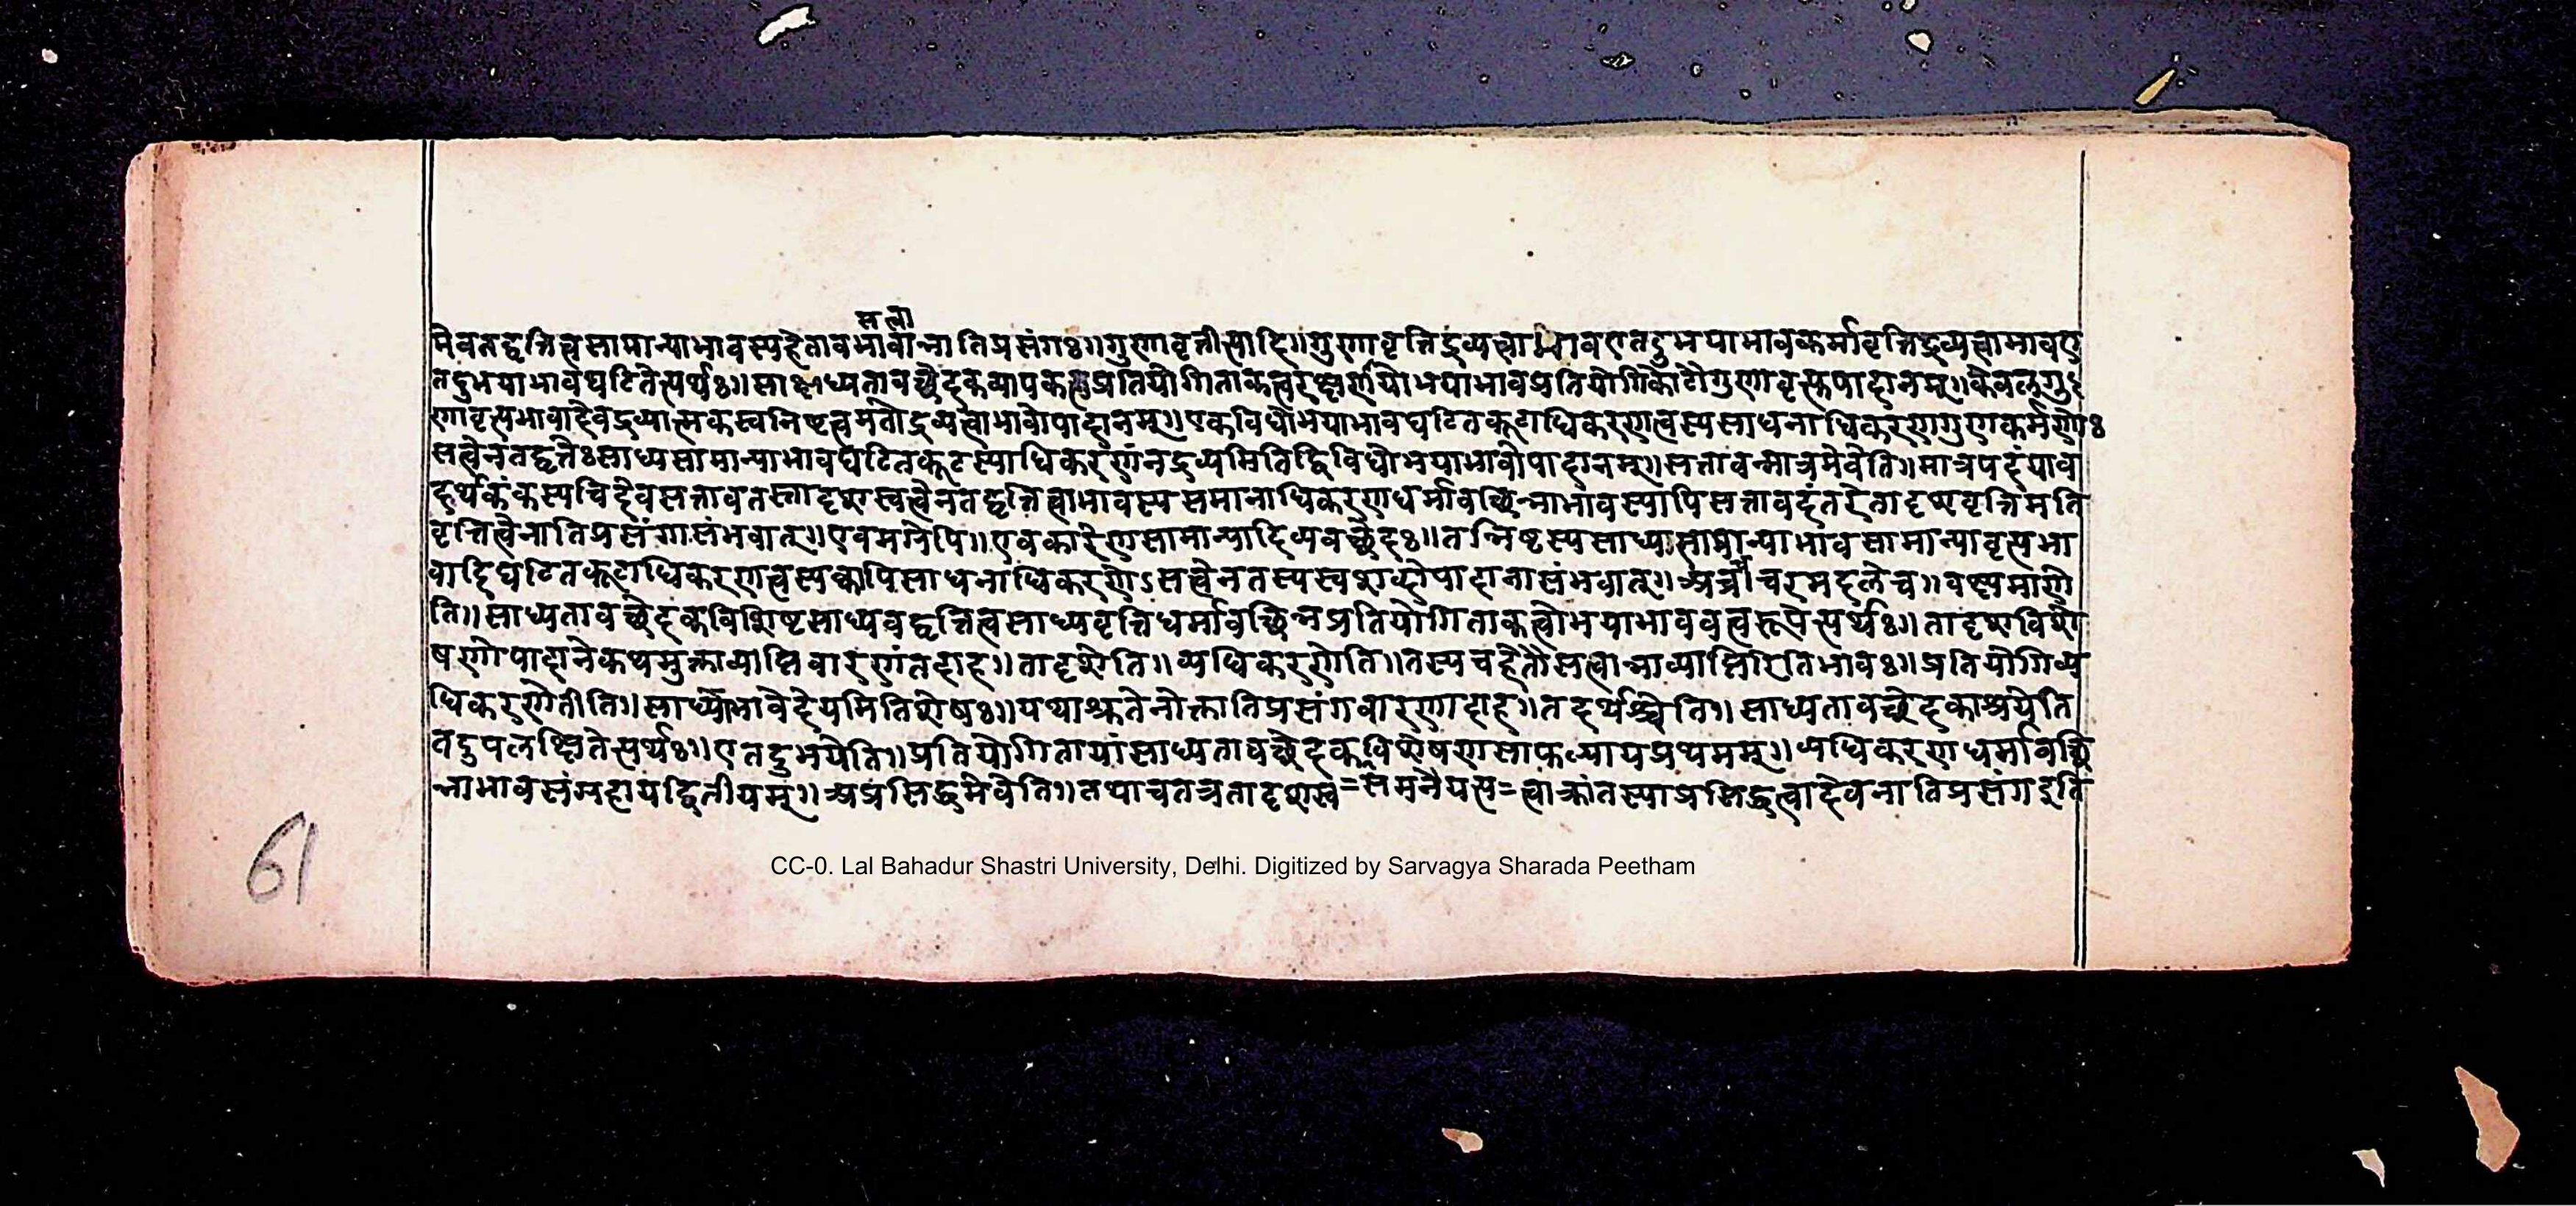 सत्वा
मेवतद्वृत्तित्वसामान्याभावस्यहेतावभावान्नातिप्रसंगः॥गुणावृत्तीत्यादि॥गुणावृत्तिद्रव्यत्वाभावएतदुभयाभावकर्मावृत्तिद्रव्यत्वाभावए
तदुभयाभावघटितेत्यर्थः॥साध्यतावच्छेदकव्यापकप्रतियोगिताकत्वरक्षार्थयोभयाभावप्रतियोगिकोटौगुणावृत्त्यस्तपादानम्॥केवलगु
णावृत्त्यभावादेवद्रव्यात्मकस्वनिष्टत्वमतोद्रव्यत्वाभावोपादानम्॥एकविधोभयाभावघटितकूटाधिकरणत्वस्यसाधनाधिकरणगुणकर्मणोः
सत्वेनतद्वृत्तेःसाध्यसामान्याभावघटितकूटस्याधिकरणंनद्रव्यमितिद्विविधोभयाभावोपादानम्॥सत्तावन्मात्रमेवेति॥मात्रपदंयाव
दर्थकंकस्यचिदेवसत्तावतस्तादृशस्वत्वेनतद्वृत्तित्वाभावस्यसमानाधिकरणधर्मावच्छिन्नाभावस्यापिसत्तावदंतरेतादृशवृत्तिमति
वृत्तित्वेनातिप्रसंगासंभवात्॥एवमग्रेपि॥एवकारेणसामान्यादिव्यवच्छेदः॥तन्निष्टस्यसाध्यसामान्याभावसामान्यावृत्त्यभा
वादिघटितकूटाधिकरणत्वस्यक्वापिसाधनाधिकरणेऽसत्वेनतस्यस्वशब्देोपादानासंभवात्॥अत्रोचरमदलेच॥वक्ष्यमाणे
ति॥साध्यतावच्छेदकविशिष्टसाध्यवद्वृत्तित्वसाध्यवृत्तिधर्मावच्छिन्नप्रतियोगिताकत्वोभयाभाववत्वरूपेत्यर्थः॥तादृशविशे
षणोपादानेकथमुक्ताव्याप्तिवारणंतदाह॥तादृशेति॥व्यधिकरणेति॥तस्यचहेतौसत्वान्नाव्याप्तिरितिभावः॥प्रतियोगिव्य
धिकरणेतीति॥साध्याभावेदेयमितिशेषः॥यथाश्रुतेनोक्तातिप्रसंगवारणादाह॥तदर्थश्चेति॥साध्यतावच्छेदकाश्रयेति
तदुपलक्षितेत्यर्थः॥एतदुभयेति॥प्रतियोगितायांसाध्यतावच्छेदकविशेषणसाफल्यायप्रथमम्॥व्यधिकरणधर्मावच्छि
न्नाभावसंग्रहायद्वितीयम्॥अप्रसिद्धमेवेति॥तथाचतत्रतादृशस्व=समनैयत्य=त्वाक्रांतस्याप्रसिद्धत्वादेवनातिप्रसंगइति
61
CC-0. Lal Bahadur Shastri University, Delhi. Digitized by Sarvagya Sharada Peetham